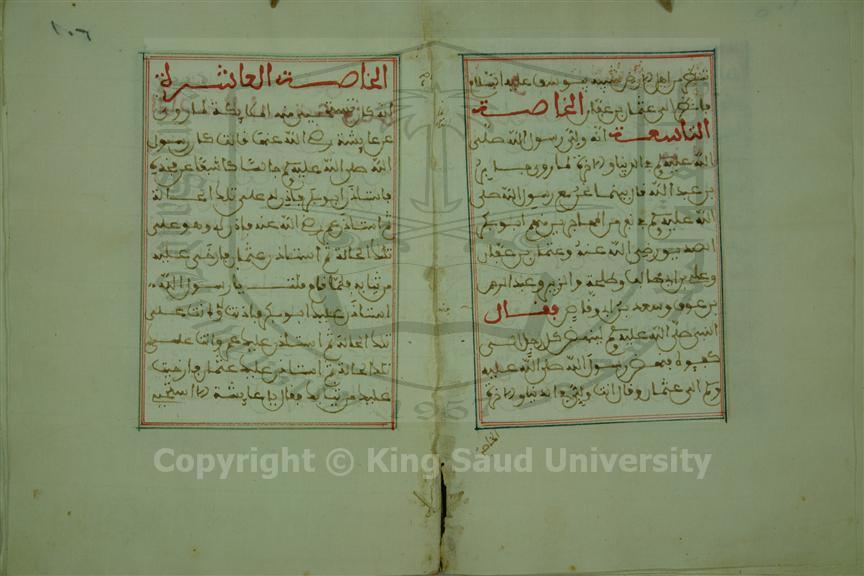 فلينظر إلى عثمان بن عفان الخاصة
التاسعة أنه ولي رسول الله صلى
الله عليه وسلم في الدنيا والآخرة لما روي جابر
بن عبد الله قال بينما نحن مع رسول الله صلى
الله عليه وسلم في نفر من المهاجرين منهم أبو بكر
الصديق ورضي الله عنه وعثمان بن عفان
وعلي بن أبي طالب وطلحة والزبير وعبد الرحمن
بن عوف وسعد بن أبي وقاص فقال
النبي صلى الله عليه وسلم لينهض كل رجل إلى
كفوه ونهض رسول الله صلى الله عليه
وسلم إلى عثمان وقال أنت وليي في الدنيا والآخرة
الخاصة
١٠٦
الخاصة العاشرة
أنه كان تستحيي منه الملائكة لما روي
عن عايشة رضي الله عنها قالت كان رسول
الله صلى الله عليه وسلم جالسا كاشفا عن فخذه
فاستأذن أبو بكر فأذن له على تلك الحالة
ثم استأذن عمر رضي الله عنه فأذن له وهو على
تلك الحالة ثم استأذن عثمان فأرخى عليه
من ثيابه فلما قام قلت يا رسول الله
استأذن عليك أبو بكر فأذنت وأنت على
تلك الحالة ثم استأذن عليك عمر وأنت على
تلك الحالة ثم استأذن عليك عثمان فأرخيت
عليك من ثيابك فقال يا عايشة ألا أستحيي
Copyright © King Saud University